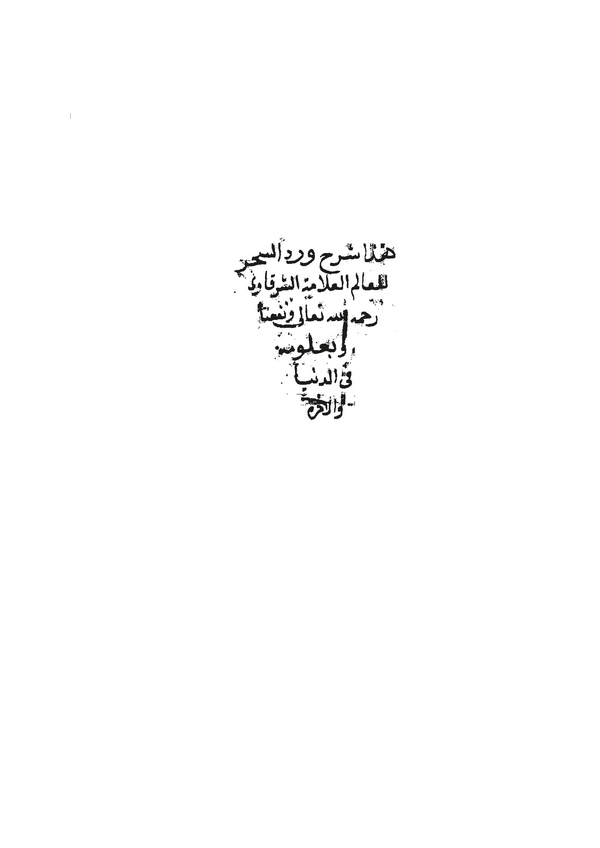 هذا شرح ورد السحر
للعالم العلامة الشرقاوي
رحمه الله تعالى ونفعنا
وبعلومه
في الدنيا
والاخرة